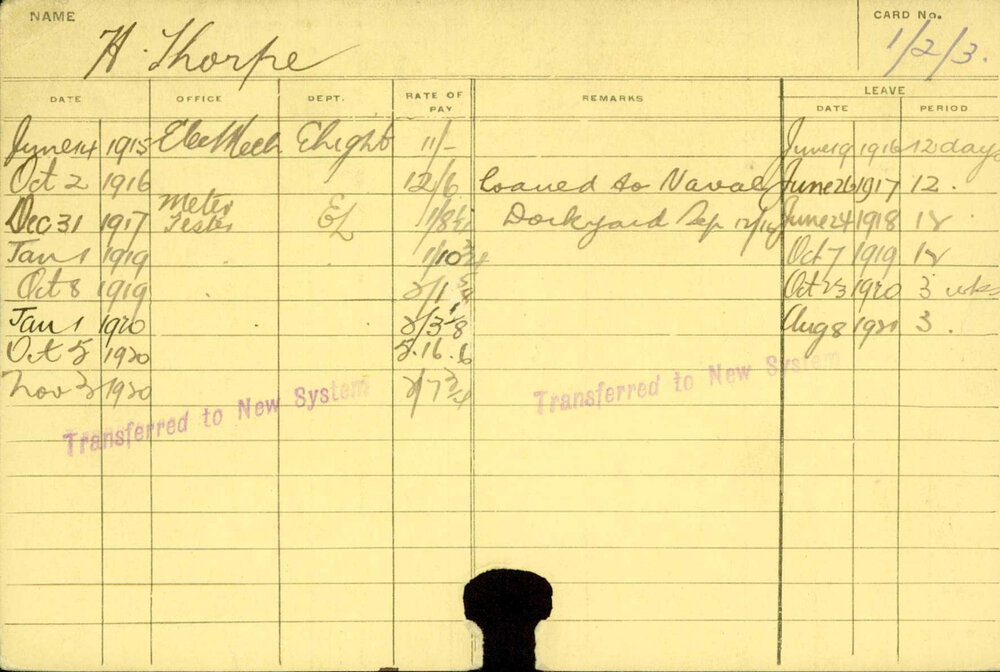 NAME
CARD No.
H. Thorpe
1/2/3.
DATE OFFICE DEPT. RATE OF PAY REMARKS LEAVE
DATE PERIOD
June 14 1915 Elec Mech E Light 11/- June 19 1916 12 days
Oct 2 1916 12/6 loaned to Naval June 26 1917 12.
Dec 31 1917 Meter Tester EL 1/8½ Dockyard Sep June 24 1918 12
Jan 1 1919 1/10¾ Oct 7 1919 12
Oct 8 1919 2/1 Oct 23 1920 3 wks
Jan 1 1920 2/3 Aug 8 1921 3.
Oct 5 1920 5.16.6
Nov 3 1920 2/7¾
Transferred to New System
Transferred to New System